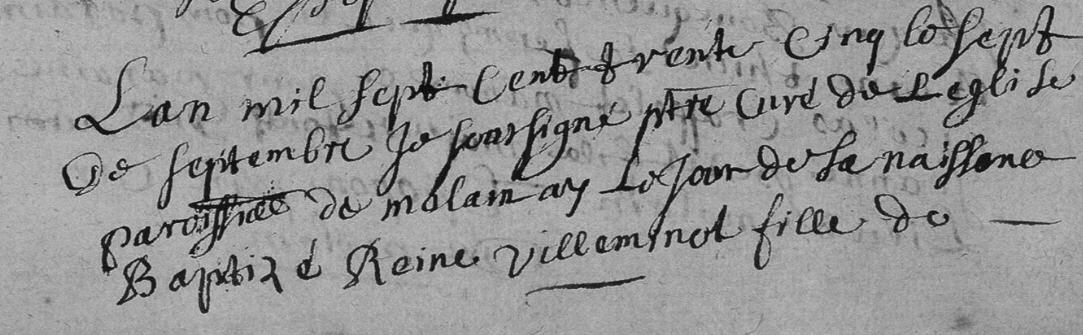 Lan mil sept Cent trente Cinq le sept
De septembre Je soussigné ptre Curé de Leglise
paroissiale de molain ay Le Jour de sa naissance
Baptizé Reine Villeminot fille de